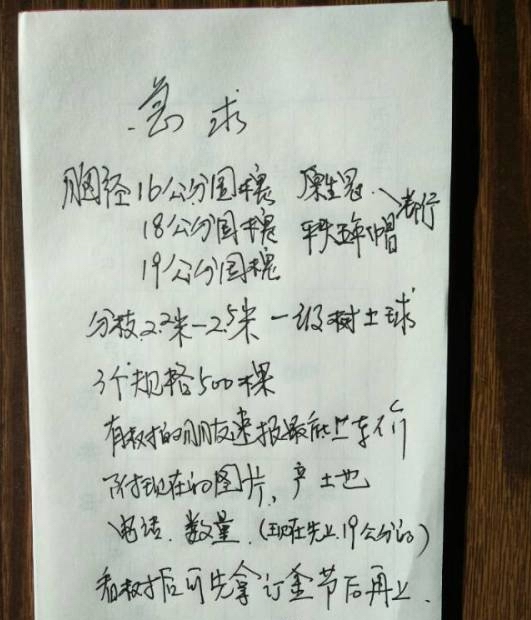 急求
胸径16公分国槐 原生冠
18公分国槐 平头 年帽 都行
19公分国槐
分枝2.2米-2.5米 一级树土球
3个规格500棵
有树的朋友速报最低上车价
附现在的图片,产土地
电话.数量.(现在先上19公分的)
看树后可先拿订金节后再上.